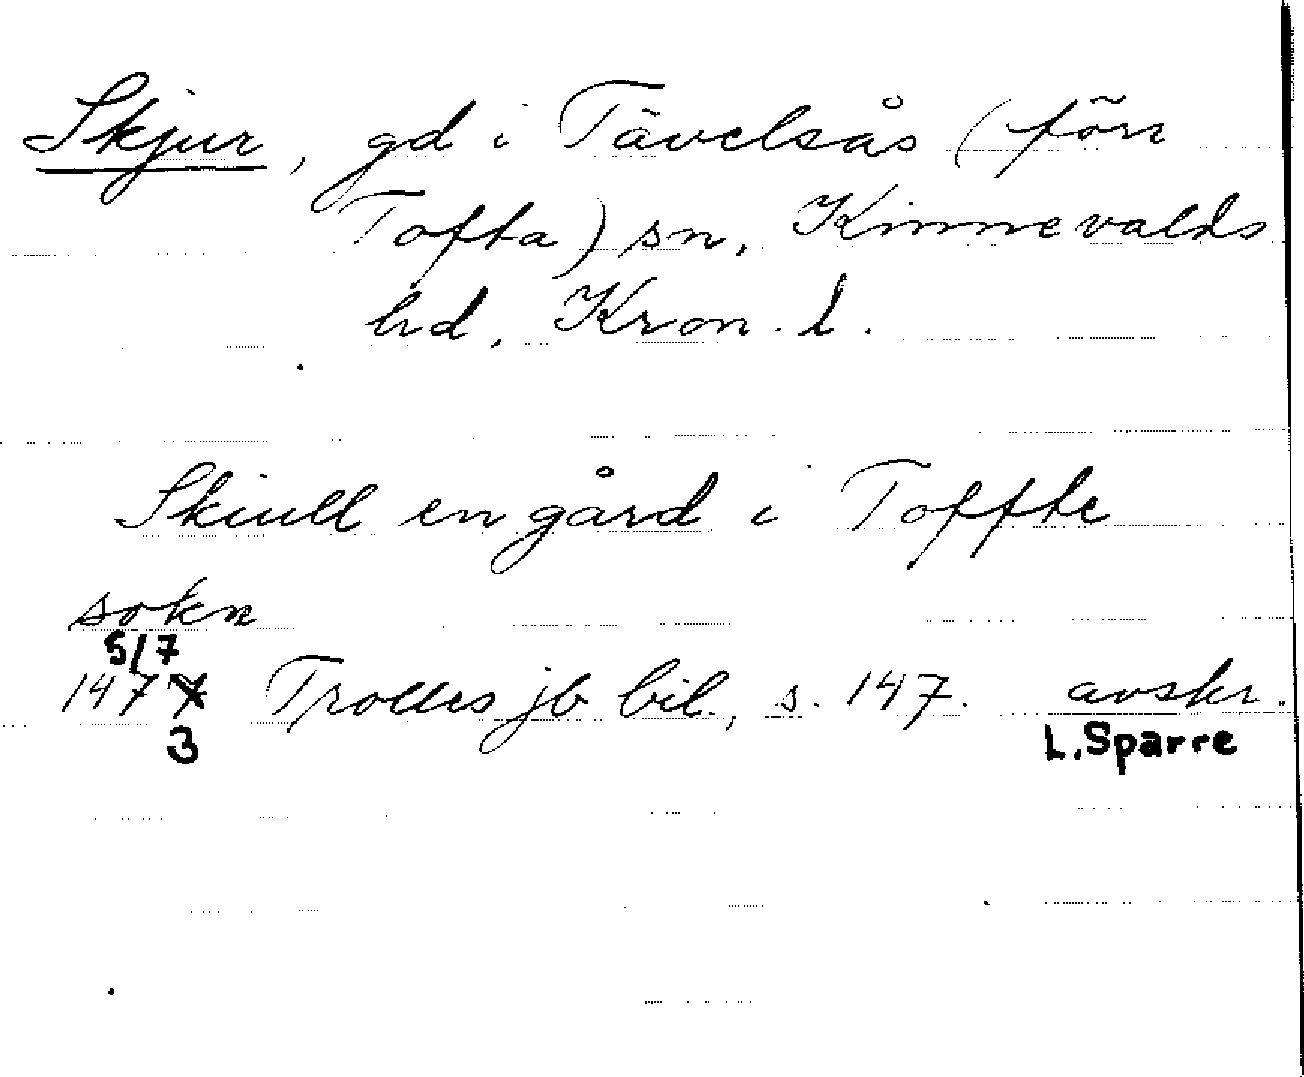 Skjur, gd i Tävelsås (förr
Tofta) sn, Kinnevalds
hd, Kron. l.
Skiull en gård i Toffte
sokn
5/7
147 3 Trolles jb bil., s. 147. avskr.
L. Sparre